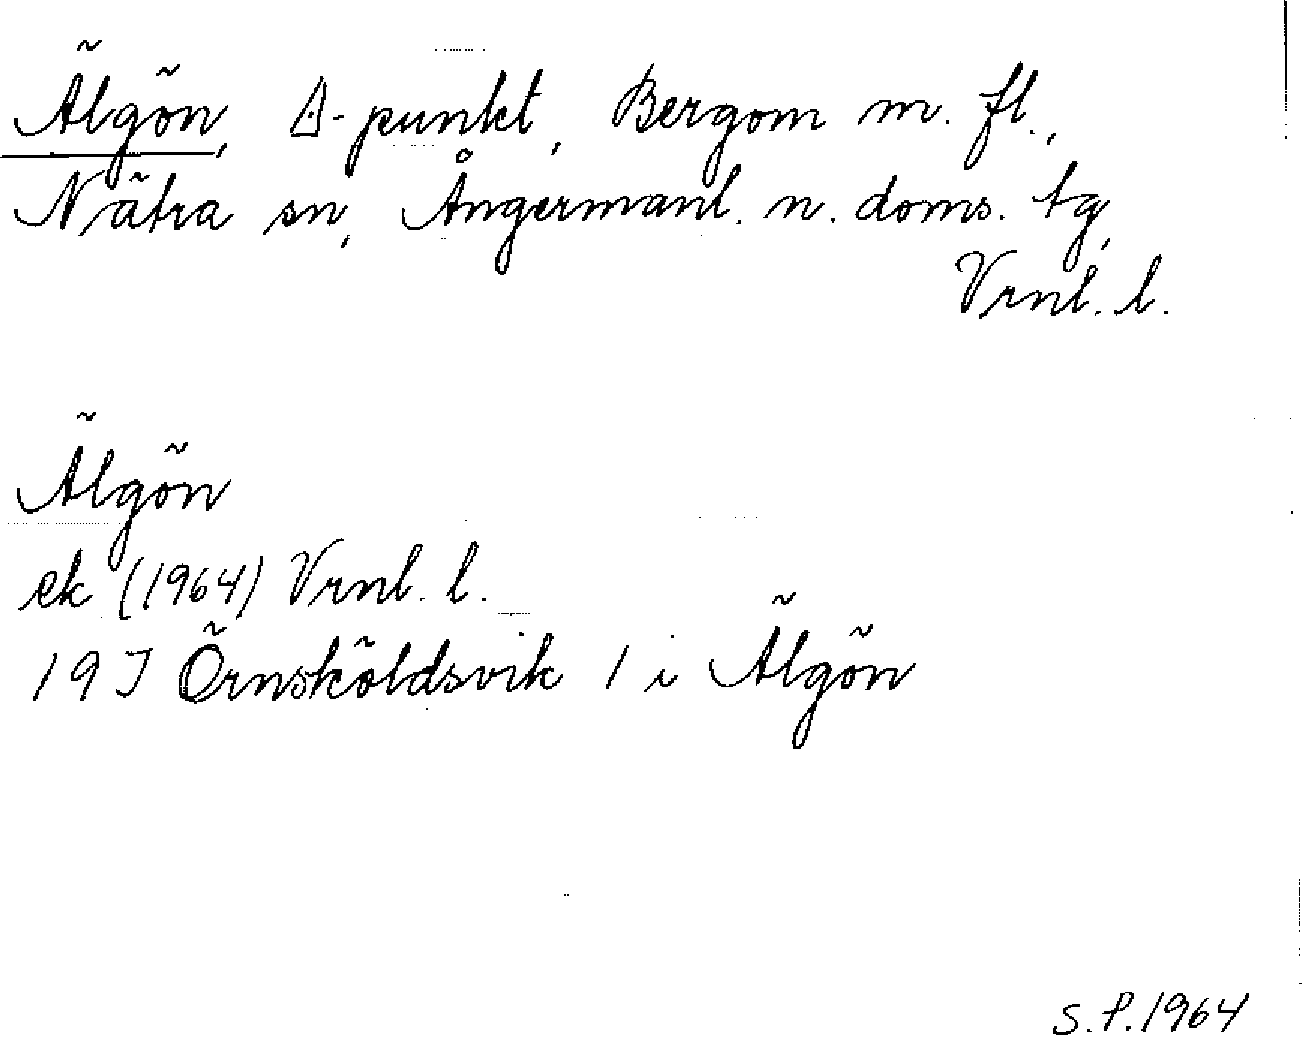 Älgön, Δ-punkt, Bergom m. fl.,
Nätra sn, Ångermanl. n. doms. tg,
Vrnl. l.
Älgön
ek (1964) Vrnl. l.
19 J Örnsköldsvik 1 i Älgön
S. P. 1964